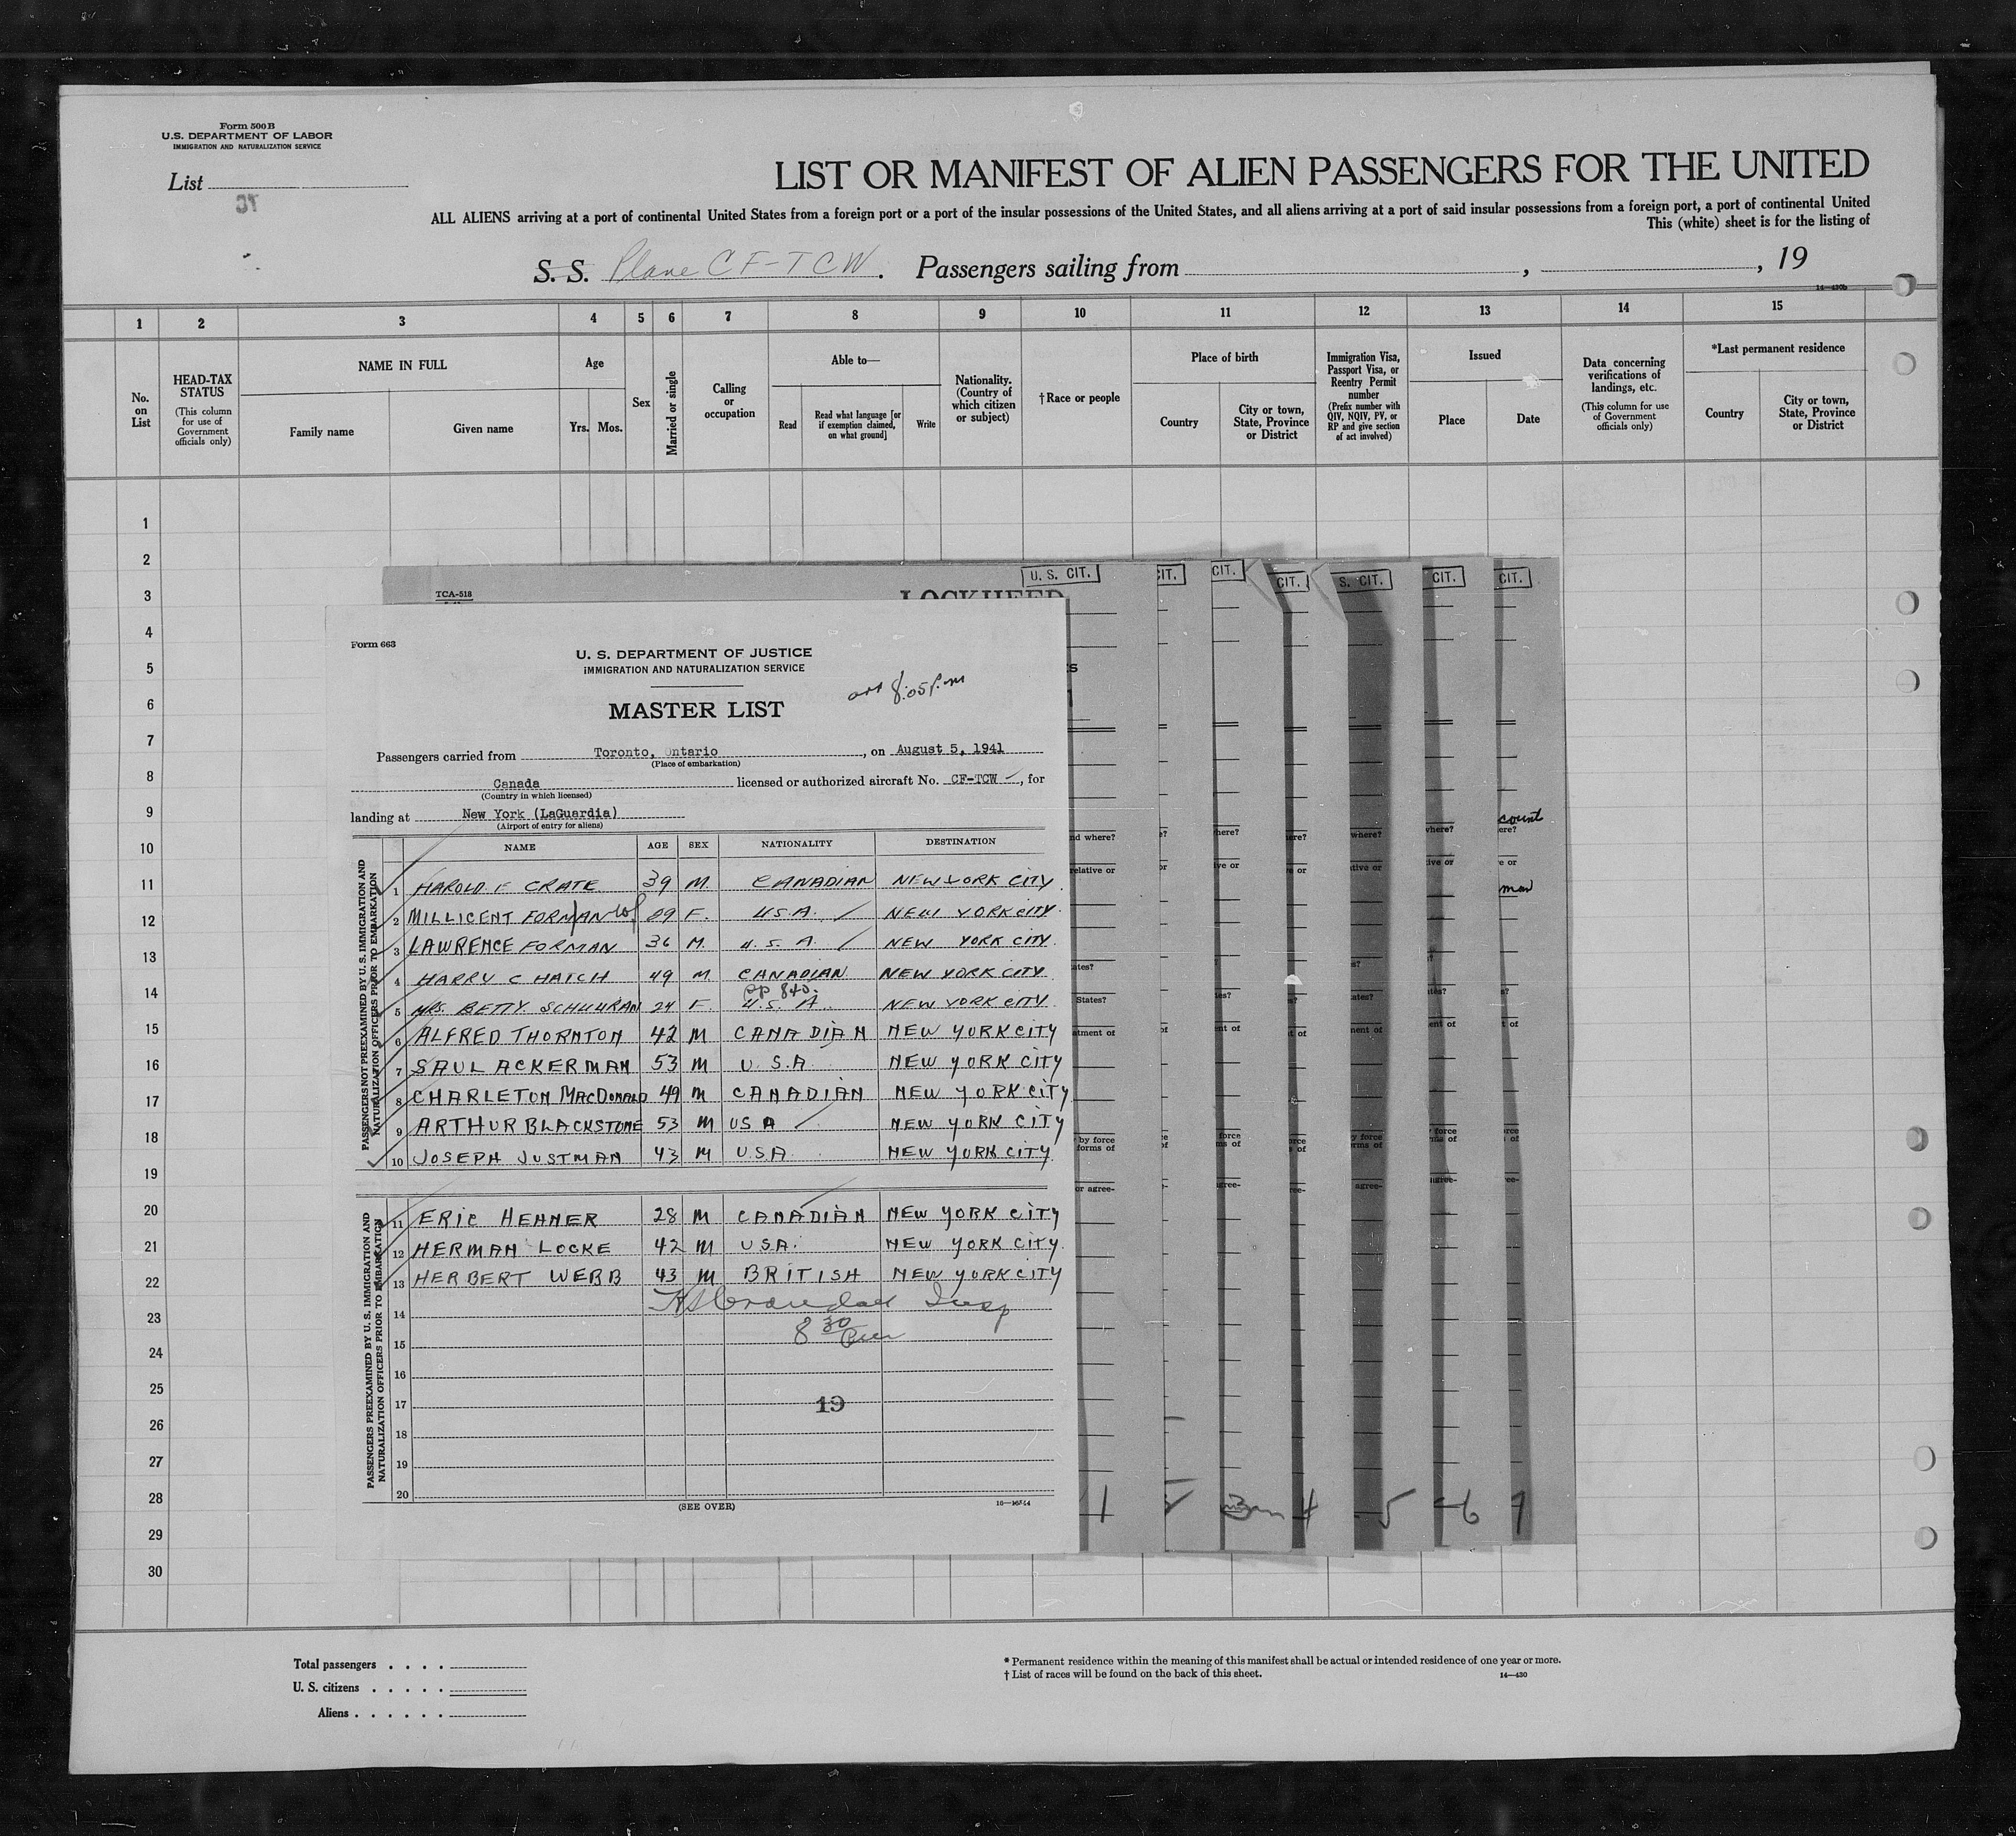 Form 500 B
U.S. DEPARTMENT OF LABOR
IMMIGRATION AND NATURALIZATION SERVICE
List
LIST OR MANIFEST OF ALIEN PASSENGERS FOR THE UNITED
ALL ALIENS arriving at a port of continental United States from a foreign port or a port of the insular possessions of the United States, and all aliens arriving at a port of said insular possessions from a foreign port, a port of continental United
This (white) sheet is for the listing of
S. S. Plane CF-TCW. Passengers sailing from , , 19
14—430b
1 2 3 4 5 6 7 8 9 10 11 12 13 14 15
No. on List
HEAD-TAX STATUS
(This column for use of Government officials only)
NAME IN FULL
Family name
Given name
Age
Yrs. Mos.
Sex
Married or single
Calling or occupation
Able to—
Read
Read what language [or if exemption claimed, on what ground]
Write
Nationality. (Country of which citizen or subject)
†Race or people
Place of birth
Country
City or town, State, Province or District
Immigration Visa, Passport Visa, or Reentry Permit number
(Prefix number with QIV, NQIV, PV, or RP and give section of act involved)
Issued
Place
Date
Data concerning verifications of landings, etc.
(This column for use of Government officials only)
*Last permanent residence
Country
City or town, State, Province or District
1
2
3
4
5
6
7
8
9
10
11
12
13
14
15
16
17
18
19
20
21
22
23
24
25
26
27
28
29
30
TCA-518
LOCKHEED
U. S. CIT.
CIT.
CIT.
CIT.
S. CIT.
CIT.
CIT.
Form 663
U. S. DEPARTMENT OF JUSTICE
IMMIGRATION AND NATURALIZATION SERVICE
arr 8:05 P.m
MASTER LIST
Passengers carried from Toronto, Ontario, on August 5, 1941
(Place of embarkation)
Canada licensed or authorized aircraft No. CF-TCW, for
(Country in which licensed)
landing at New York (LaGuardia)
(Airport of entry for aliens)
NAME AGE SEX NATIONALITY DESTINATION
PASSENGERS NOT PREEXAMINED BY U. S. IMMIGRATION AND NATURALIZATION OFFICERS PRIOR TO EMBARKATION
1 HAROLD F CRATE 39 M. CANADIAN NEW YORK CITY
2 MILLICENT FORMAN 29 F. U.S.A. NEW YORK CITY.
3 LAWRENCE FORMAN 36 M. U. S. A. NEW YORK CITY.
4 HARRY C HATCH 49 M CANADIAN NEW YORK CITY
pp 840.
5 MRS. BETTY SCHUURAN 24 F. U.S. A. NEW YORK CITY.
6 ALFRED THORNTON 42 M CANADIAN NEW YORK CITY
7 SAUL ACKERMAN 53 M U.S.A NEW YORK CITY
8 CHARLETON MACDONALD 49 M CANADIAN NEW YORK CITY
9 ARTHUR BLACKSTONE 53 M USA NEW YORK CITY
10 JOSEPH JUSTMAN 43 M USA NEW YORK CITY
PASSENGERS PREEXAMINED BY U. S. IMMIGRATION AND NATURALIZATION OFFICERS PRIOR TO EMBARKATION
11 ERIC HEHNER 28 M CANADIAN NEW YORK CITY
12 HERMAN LOCKE 42 M USA. NEW YORK CITY.
13 HERBERT WEBB 43 M BRITISH NEW YORK CITY
14 Insp
15 8 30 Pm
16
17 19
18
19
20
(SEE OVER)
nd where?
relative or
States?
by force
forms of
or agree-
count
man
1 2 3 4 5 6 7
Total passengers
U. S. citizens
Aliens
* Permanent residence within the meaning of this manifest shall be actual or intended residence of one year or more.
† List of races will be found on the back of this sheet.
14—430